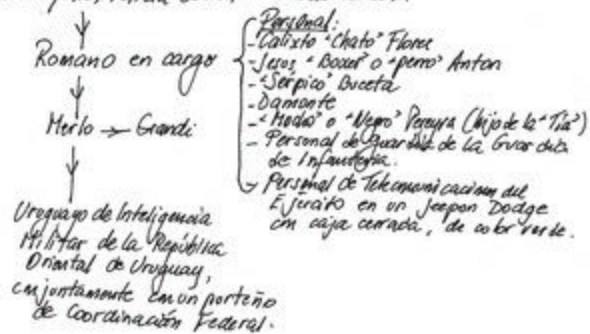 Romano en cargo
Merlo → Grandi
Uruguayo de Inteligencia
Militar de la República
Oriental de Uruguay,
conjuntamente con un porteño
de Coordinación Federal.
Personal:
- Calixto "Chato" Flores
- Jesus "Boxer" o "perro" Anton
- "Serpico" Buceta
- Damonte
- o "Negro" Pereyra (hijo de la "Tía")
- Personal de Guardia de la Guardia
de Infantería.
- Personal de Telecomunicaciones del
Ejército en un Jeepon Dodge
con caja cerrada, de color verde.